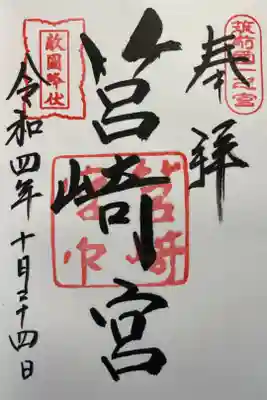 筑前國一之宮
奉拝
筥崎宮
筥崎宮印
敵國降伏
令和四年十月二十四日